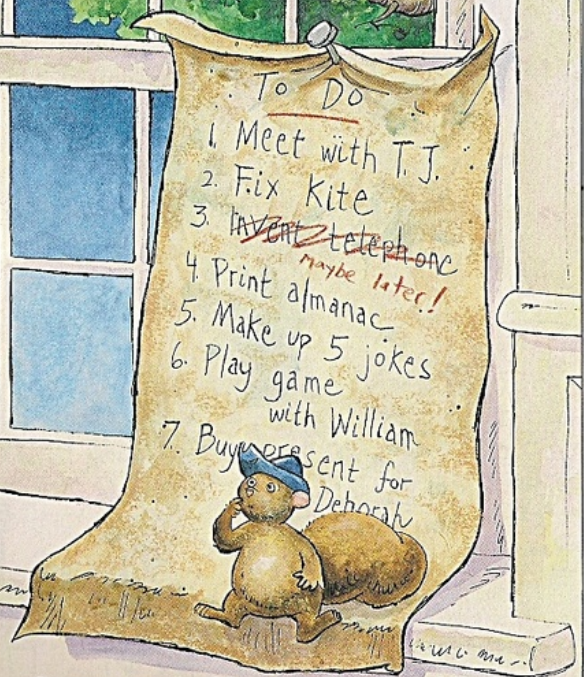 To Do
1. Meet with T.J.
2. Fix Kite
3. Invent telephone
maybe later!
4. Print almanac
5. Make up 5 jokes
6. Play game
with William
7. Buy present for
Deborah